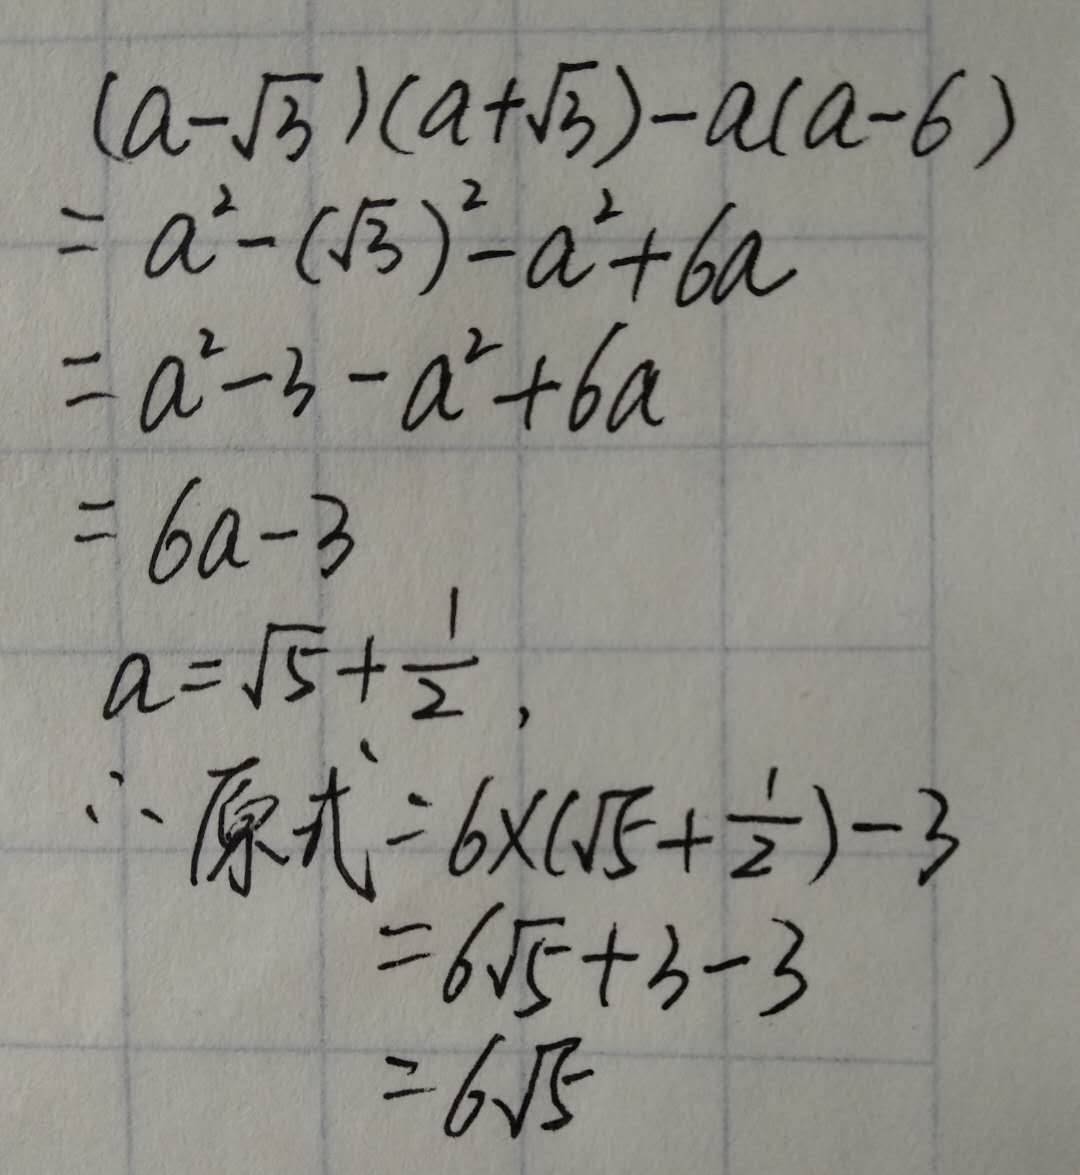 (a-√3)(a+√3)-a(a-6)
= a²-(√3)²-a²+6a
= a²-3-a²+6a
= 6a-3
a=√5+1/2,
∴原式=6×(√5+1/2)-3
=6√5+3-3
=6√5